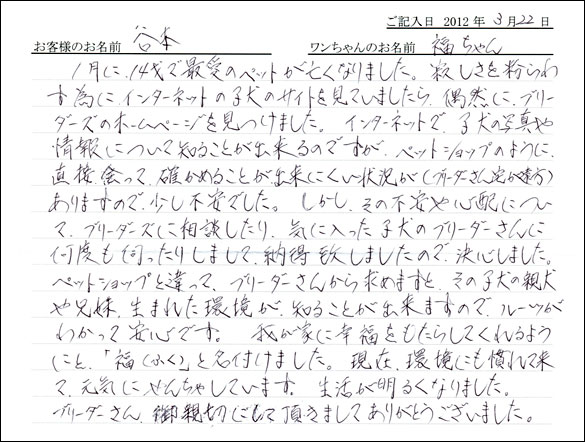 ご記入日 2012年 3月22日
お客様のお名前 谷本 ワンちゃんのお名前 福ちゃん
1月に、14才で最愛のペットが亡くなりました。寂しさを紛らわ
す為に、インターネットの子犬のサイトを見ていましたら、偶然に、ブリー
ダーズのホームページを見つけました。インターネットで、子犬の写真や
情報について知ることが出来るのですが、ペットショップのように、
直接、会って、確かめることが出来にくい状況が(ブリーダーさん宅が遠方)
ありますので、少し不安でした。しかし、その不安や心配につい
て、ブリーダーズに相談したり、気に入った子犬のブリーダーさんに
何度も伺ったりしまして、納得致しましたので、決心しました。
ペットショップと違って、ブリーダーさんから求めますと、その子犬の親犬
や兄妹、生まれた環境が、知ることが出来ますので、ルーツが
わかって安心です。我が家に幸福をもたらしてくれるよう
にと、「福(ふく)」と名付けました。現在、環境にも慣れて来
て、元気にやんちゃしています。生活が明るくなりました。
ブリーダーさん、御親切にして頂きましてありがとうございました。